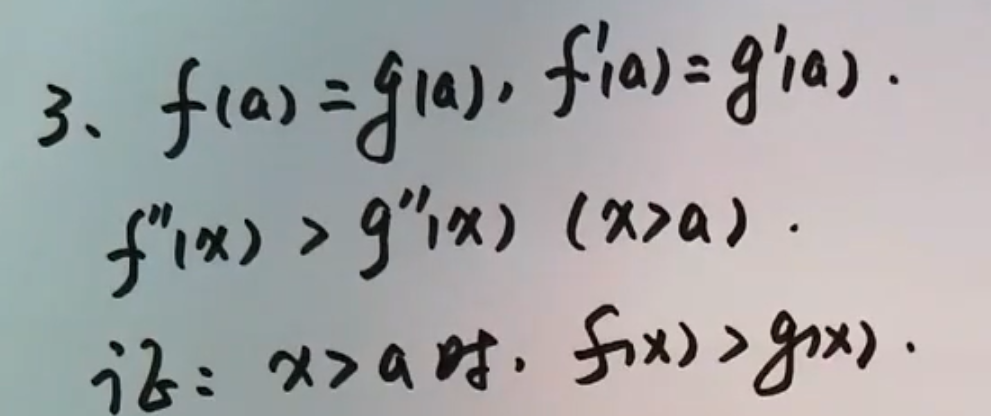 3、f(a)=g(a),f'(a)=g'(a).
f''(x)>g''(x)(x>a).
证:x>a时,f(x)>g(x).